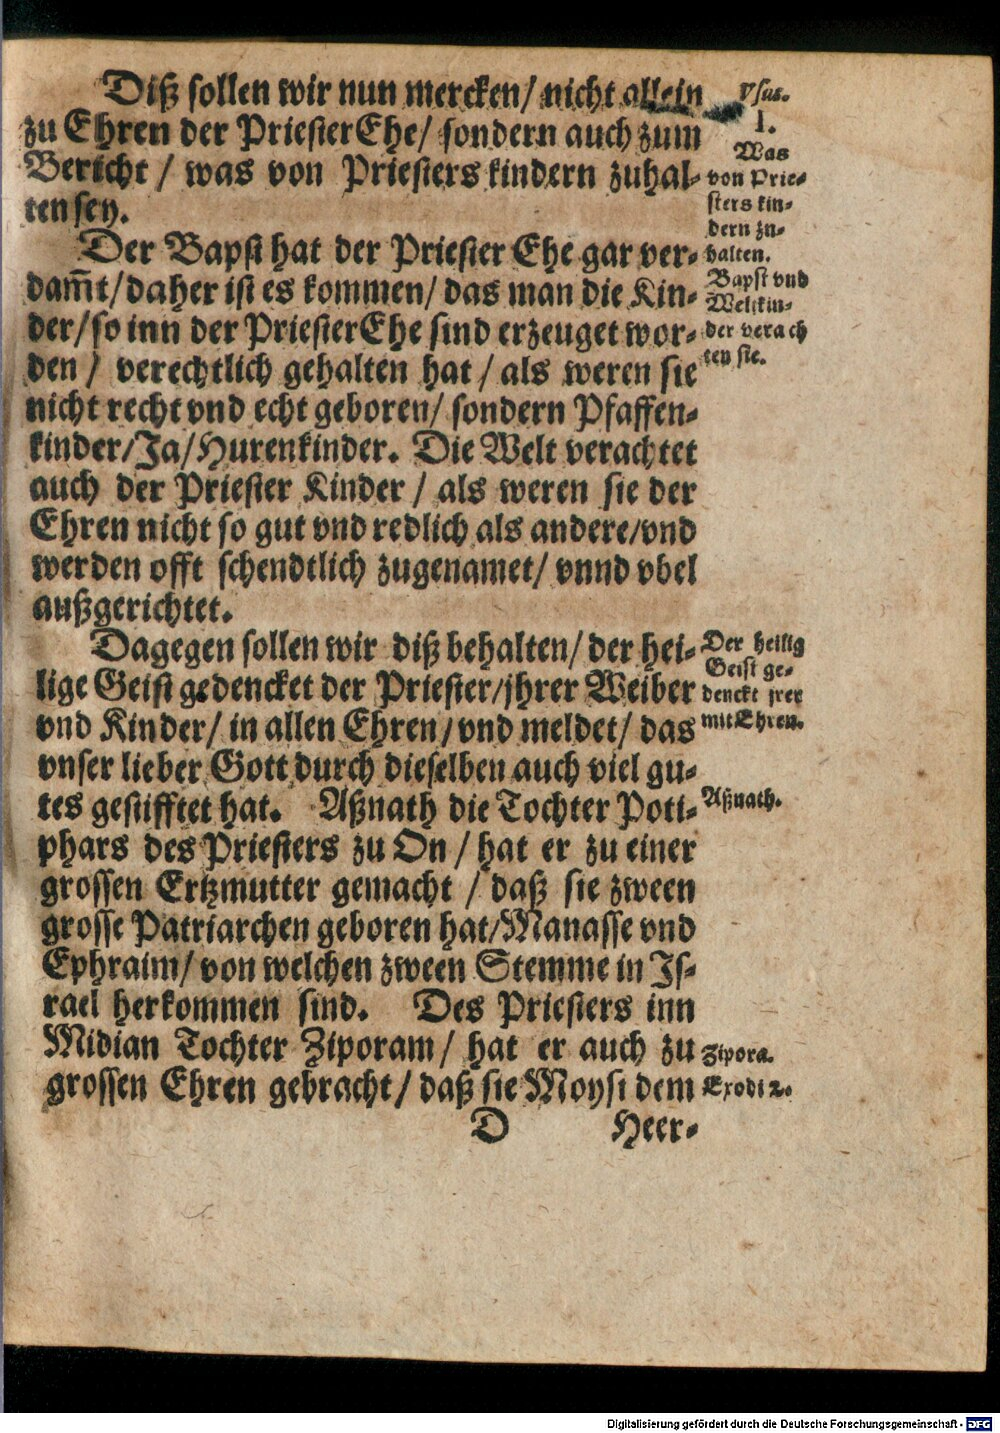 Diß sollen wir nun mercken/ nicht allein
zu Ehren der PriesterEhe/ sondern auch zum
Bericht / was von Priesters kindern zuhal-
ten sey.
Vsus.
1.
Was
von Prie-
sters kin-
dern zu-
halten.
Der Bapst hat der Priester Ehe gar ver-
dam̄t/ daher ist es kommen/ das man die Kin-
der/ so inn der PriesterEhe sind erzeuget wor-
den / verechtlich gehalten hat / als weren sie
nicht recht vnd echt geboren/ sondern Pfaffen-
kinder/ Ja/ Hurenkinder. Die Welt verachtet
auch der Priester Kinder / als weren sie der
Ehren nicht so gut vnd redlich als andere/ vnd
werden offt schendtlich zugenamet/ vnnd vbel
außgerichtet.
Bapst vnd
Welt kin-
der verach
ten sie.
Dagegen sollen wir diß behalten/ der hei-
lige Geist gedencket der Priester/ jhrer Weiber
vnd Kinder/ in allen Ehren/ vnd meldet/ das
vnser lieber Gott durch dieselben auch viel gu-
tes gestifftet hat. Aßnath die Tochter Poti-
phars des Priesters zu On / hat er zu einer
grossen Ertzmutter gemacht / daß sie zween
grosse Patriarchen geboren hat/ Manasse vnd
Ephraim/ von welchen zween Stemme in Is-
rael herkommen sind. Des Priesters inn
Midian Tochter Ziporam/ hat er auch zu
grossen Ehren gebracht/ daß sie Moysi dem
Der heilig
Geist ge-
denckt jrer
mit Ehren.
Aßnath.
Zipora.
Exodi 2.
D Heer-
Digitalisierung gefördert durch die Deutsche Forschungsgemeinschaft - DFG